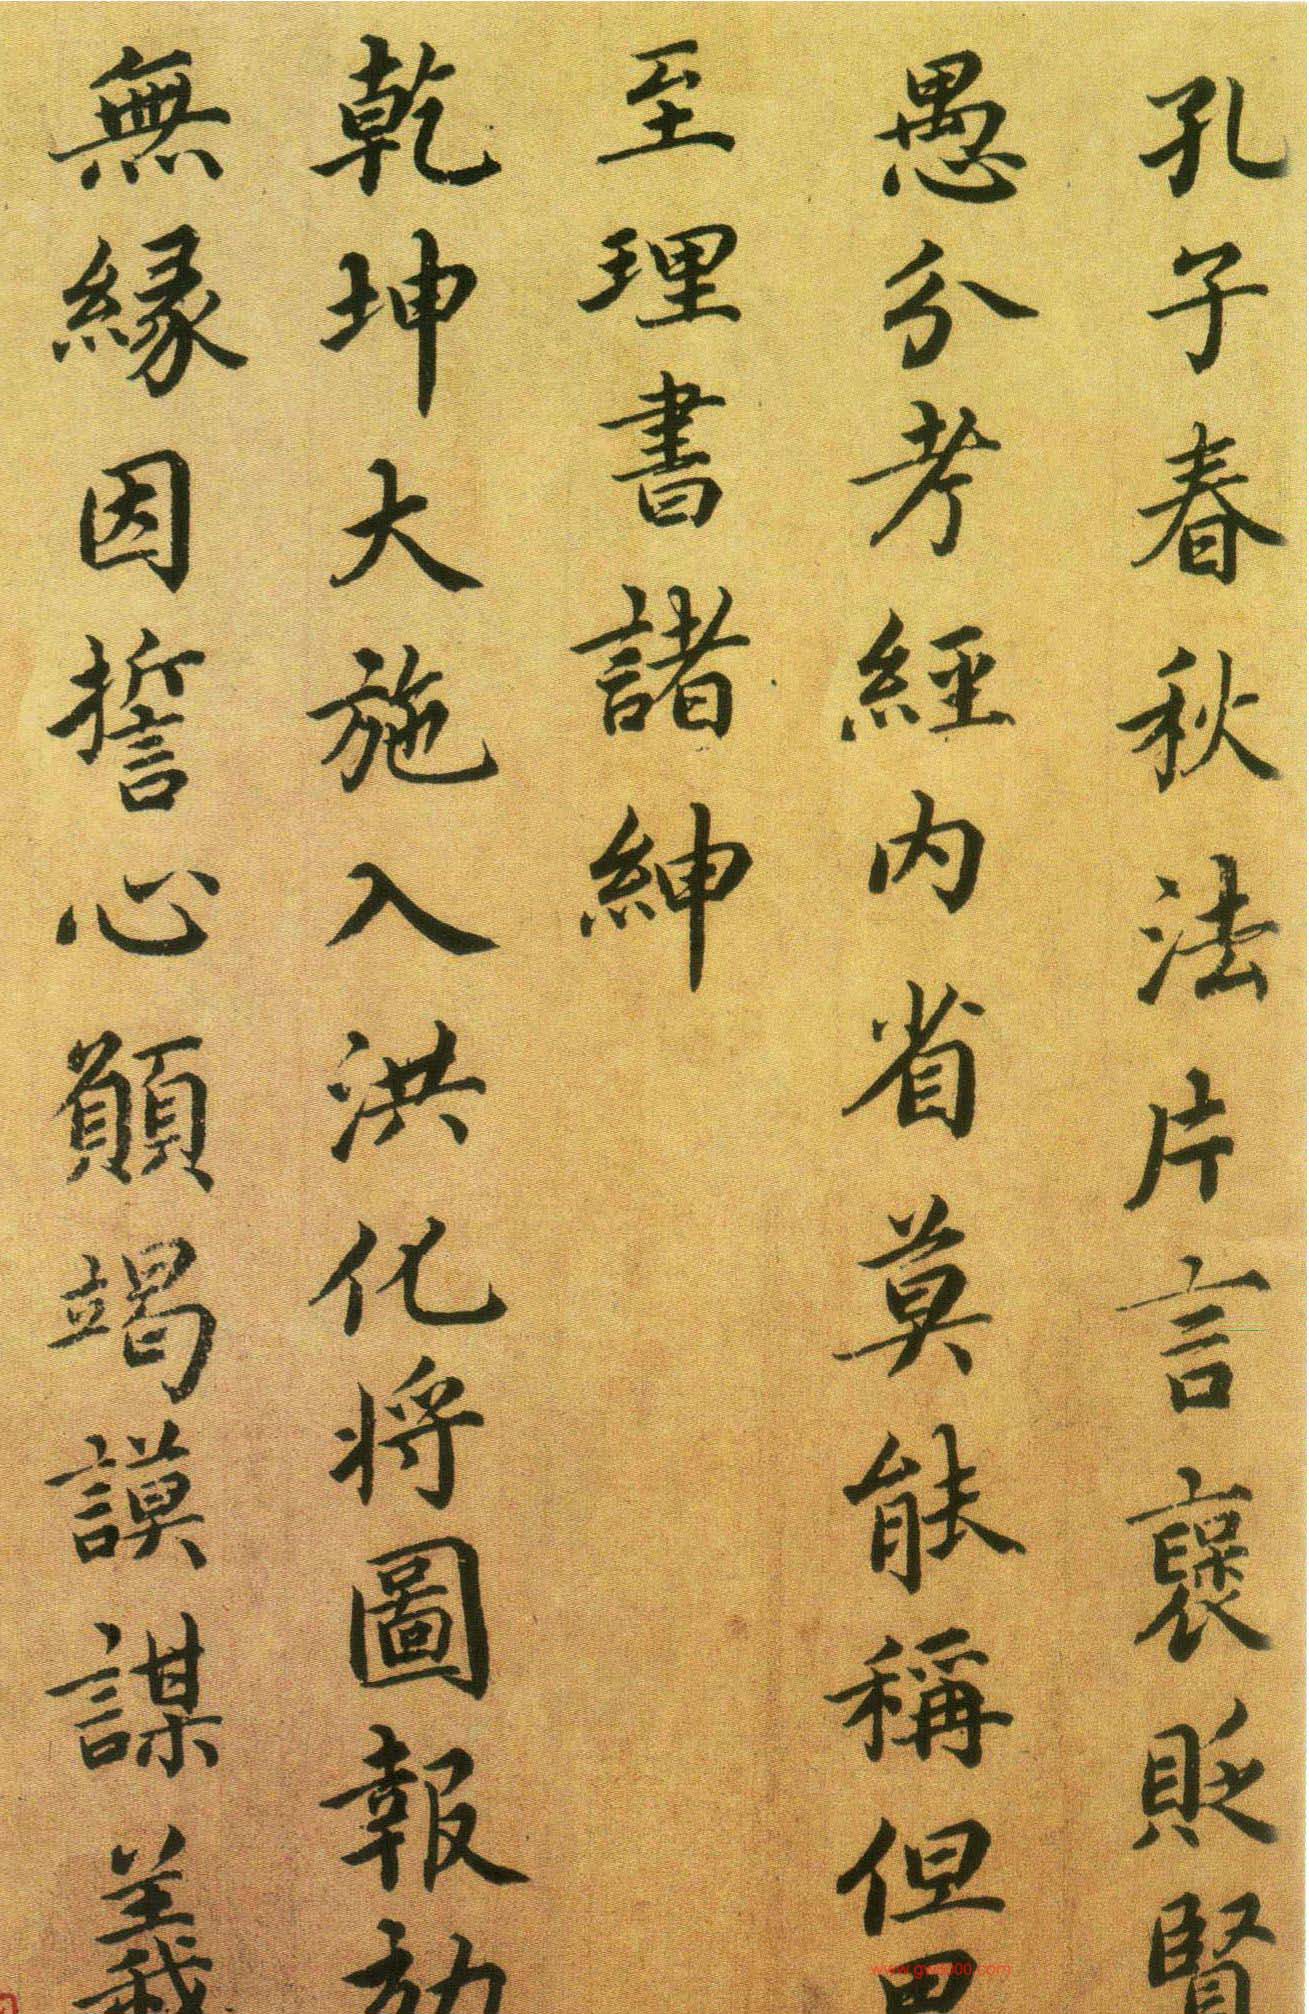 孔子春秋法片言襃貶賢
愚分考經内省莫能稱但
至理書諸紳
乾坤大施入洪化将圖報
無緣因誓心願竭謨謀義